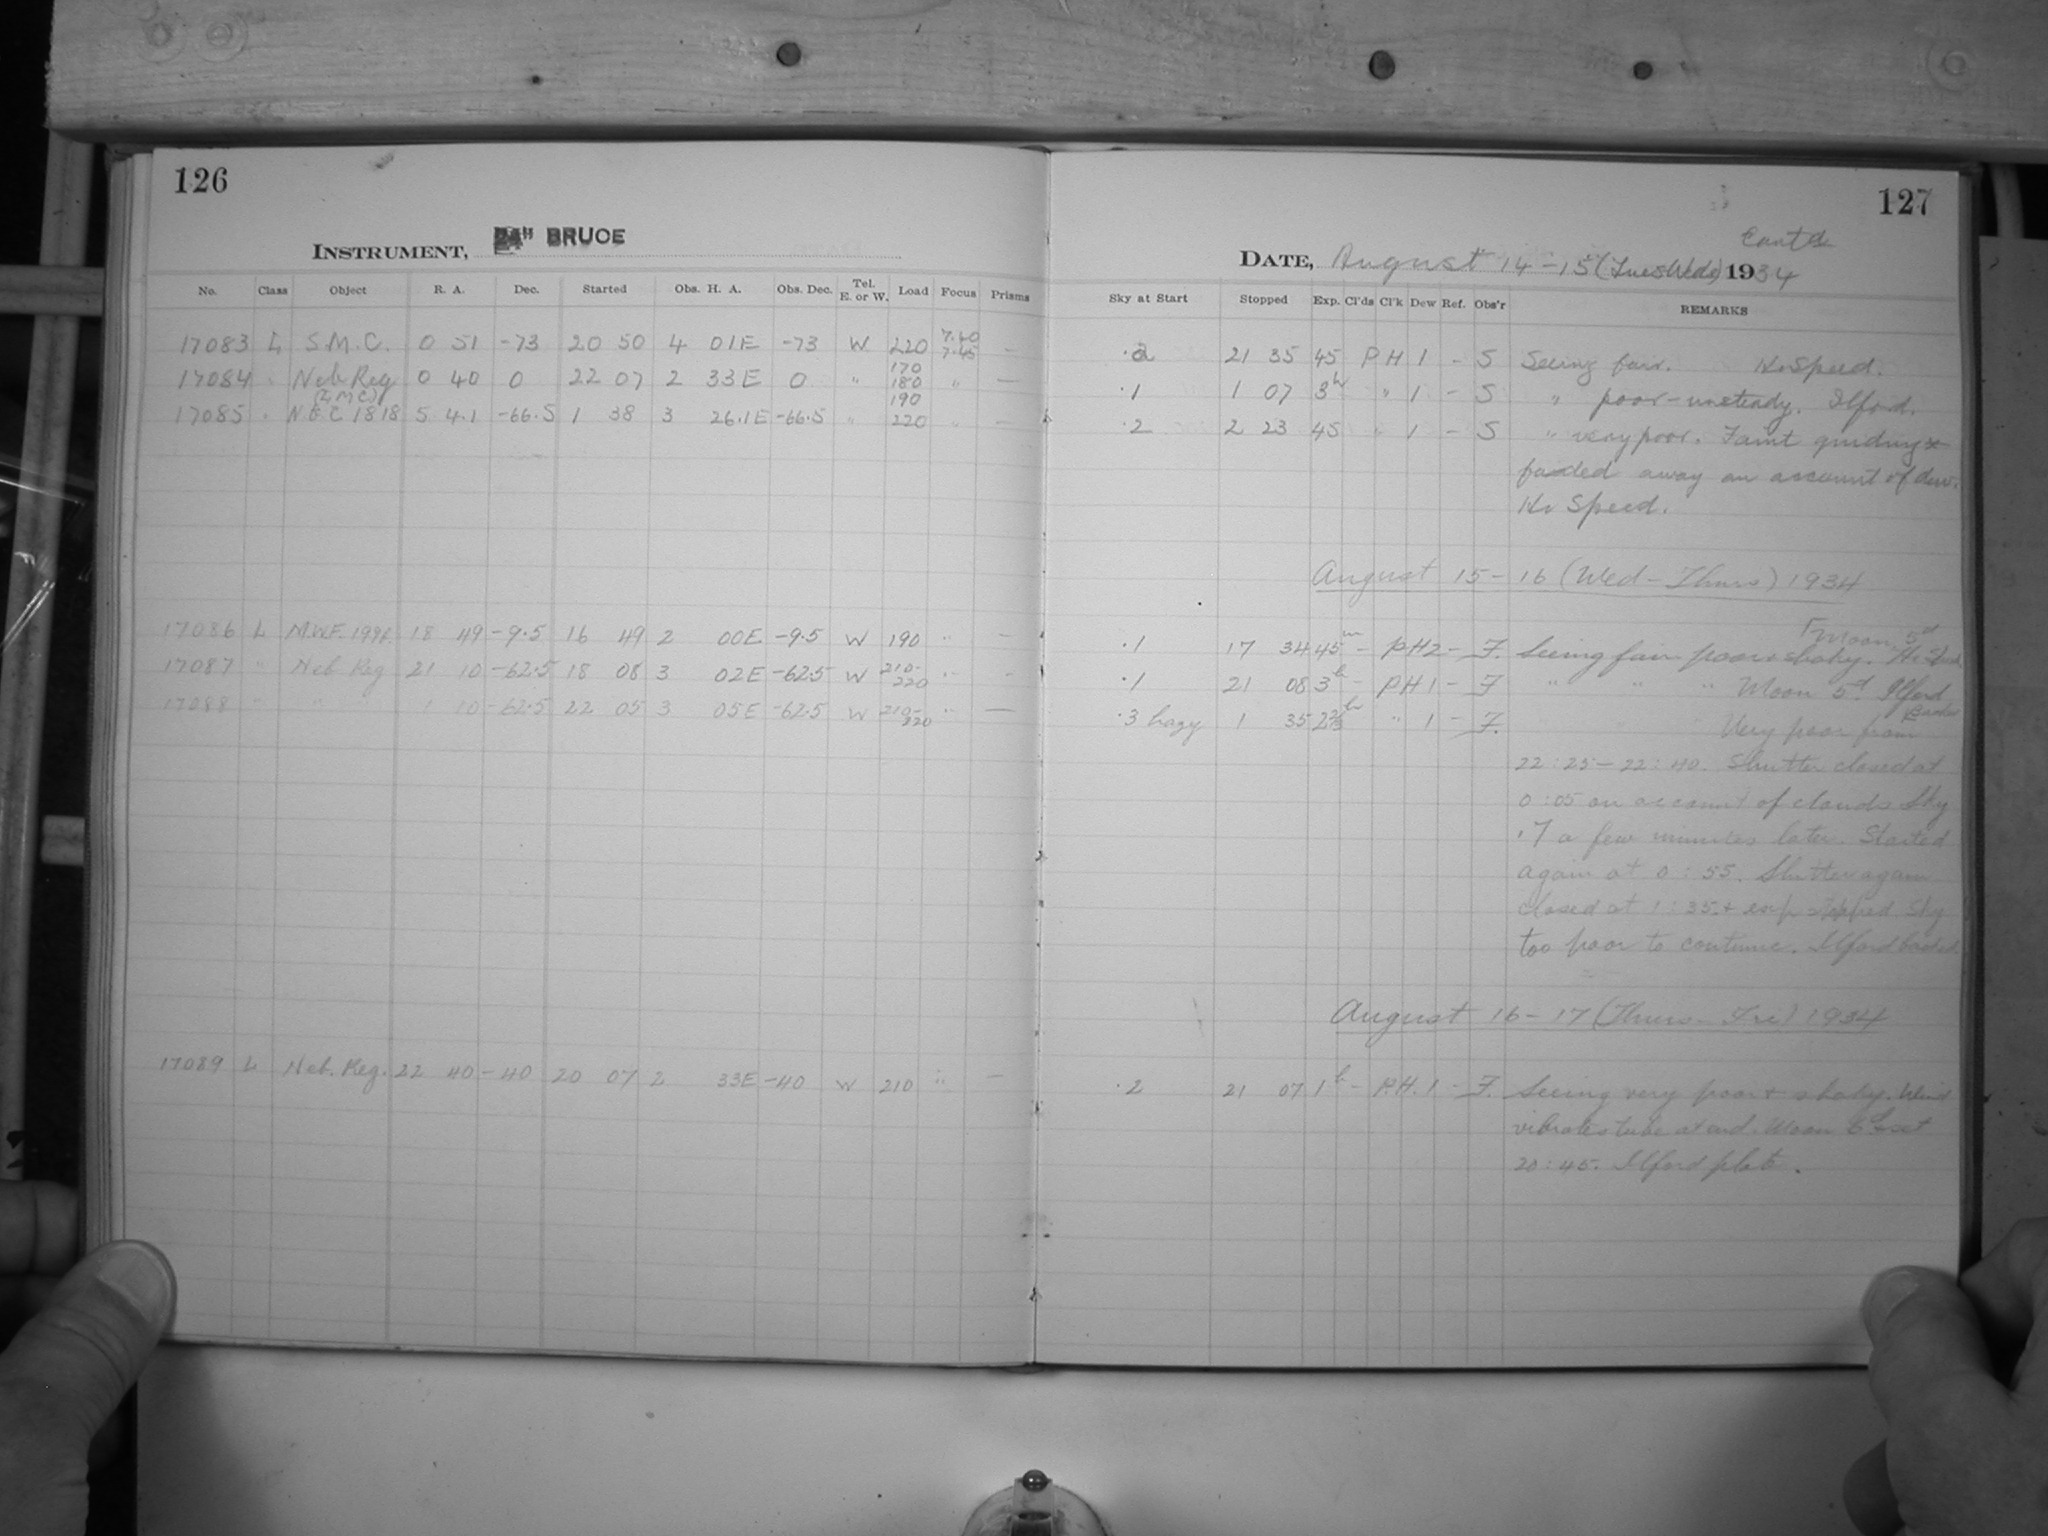 126
INSTRUMENT, 24" BRUCE
No. Class Object R. A. Dec. Started Obs. H. A. Obs. Dec. Tel. E. or W. Load Focus Prisms
17083 L S.M.C. 0 51 -73 20 50 4 01E -73 W 220 7.40 7.45 —
17084 " Neb Reg 0 40 0 22 07 2 33E 0 " 170 180 190 " —
(L.M.C)
17085 " N.G.C 1818 5 4.1 -66.5 1 38 3 26.1E -66.5 " 220 " —
17086 L M.W.F. 18 49 -9.5 16 49 2 00E -9.5 W 190 " —
17087 " Neb Reg 21 10 -62.5 18 08 3 02E -62.5 W 210-220 " -
17088 " " " 1 10 -62.5 22 05 3 05E -62.5 W 210-220 " —
17089 L Neb. Reg. 22 40 -40 20 07 2 33E -40 W 210 " —
127
Cont'd
DATE, August 14-15 (Tues Wed) 1934
Sky at Start Stopped Exp. Cl'ds Cl'k Dew Ref. Obs'r REMARKS
.2 21 35 45 P H 1 - S Seeing fair. Hi Speed.
.1 1 07 3h " 1 - S " poor-unsteady. Ilford.
.2 2 23 45 " 1 - S " very poor. Faint guiding *
faded away on account of dew.
Hi Speed.
August 15-16 (Wed-Thurs) 1934
Moon 5d
.1 17 34 45m - PH 2 - F. Seeing fair poor & shaky. Hi Speed
.1 21 08 3h - PH 1 - F " " " Moon 5d Ilford
Backed
.3 hazy 1 35 2 2/3h " 1 - F. Very poor from
22:25-22:40. Shutter closed at
0:05 on account of clouds Sky
.7 a few minutes later. Started
again at 0:55. Shutter again
closed at 1:35 & exp stopped Sky
too poor to continue. Ilford backed
August 16-17 (Thurs-Fri) 1934
.2 21 07 1h - P.H. 1 - F. Seeing very poor & shaky. Wind
vibrates tube at end. Moon 6d set
20:45. Ilford plate.